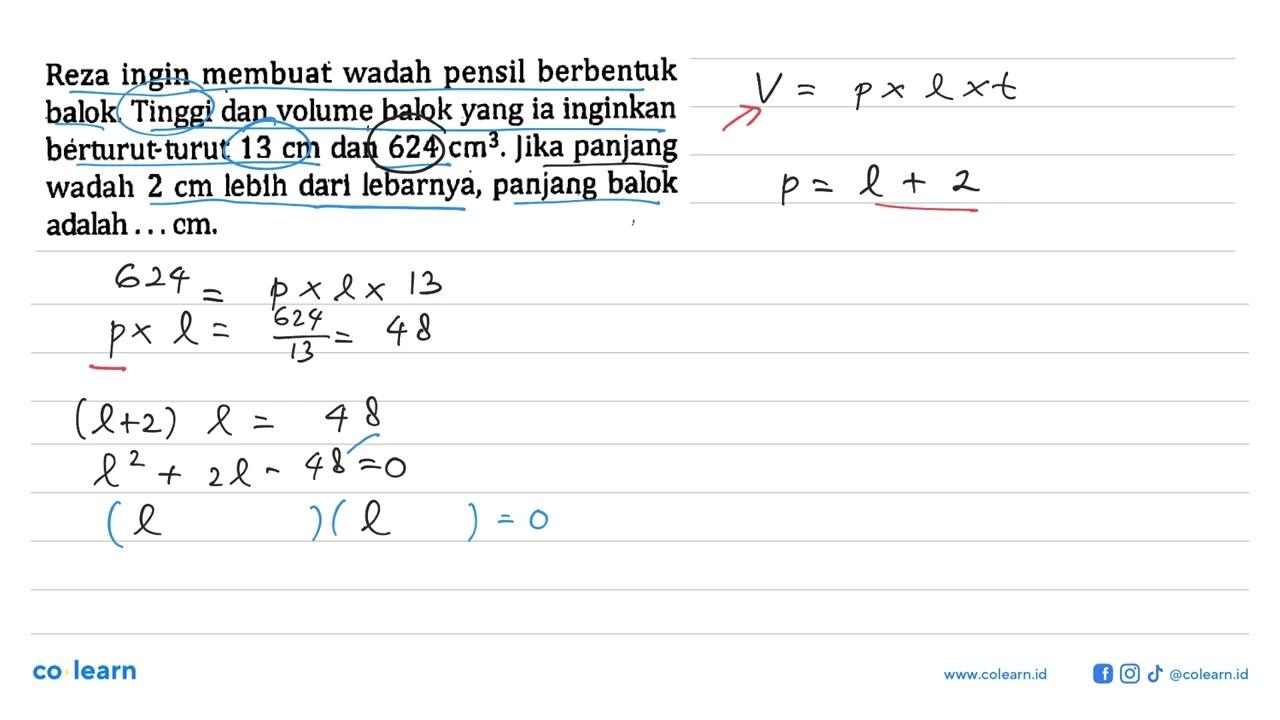 Reza ingin membuat wadah pensil berbentuk
balok. Tinggi dan volume balok yang ia inginkan
berturut-turut 13 cm dan 624 cm³. Jika panjang
wadah 2 cm lebih dari lebarnya, panjang balok
adalah ... cm.
V = p x l x t
p = l + 2
624 = p x l x 13
p x l = 624/13 = 48
(l+2) l = 48
l² + 2l - 48 = 0
(l )(l ) = 0
co learn
www.colearn.id
@colearn.id